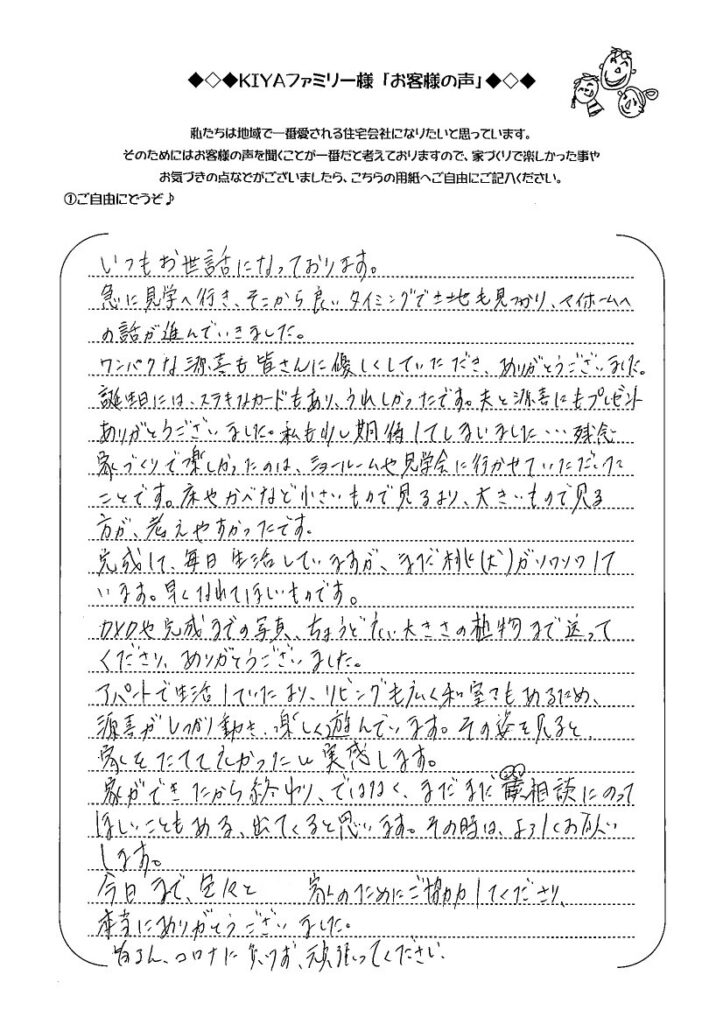 ◆◇◆KIYAファミリー様「お客様の声」◆◇◆
私たちは地域で一番愛される住宅会社になりたいと思っています。
そのためにはお客様の声を聞くことが一番だと考えておりますので、家づくりで楽しかった事や
お気づきの点などがございましたら、こちらの用紙へご自由にご記入ください。
①ご自由にどうぞ♪
いつもお世話になっております。
急に見学へ行き、そこから良いタイミングで土地も見つかり、マイホームへ
の話が進んでいきました。
ワンパクな源喜も皆さんに優しくしていただき、ありがとうございました。
誕生日には、ステキなカードもあり、うれしかったです。夫と源喜にもプレゼント
ありがとうございました。私も少し期待してしまいました…残念
家づくりで楽しかったのは、ショールームや見学会に行かせていただいた
ことです。床やかべなど小さいもので見るより、大きいもので見る
方が、考えやすかったです。
完成して、毎日生活していますが、まだ()がソワソワして
います。早くなれてほしいものです。
DVDや完成までの写真、ちょうどえい大きさの植物まで送って
くださり、ありがとうございました。
アパートで生活していたより、リビングも広く和室もあるため、
源喜がしっかり動き、楽しく遊んでいます。その姿を見ると、
家をたててえかったなと実感します。
家ができたから終わり、ではなく、まだまだ相談にのって
ほしいこともある、出てくると思います。その時は、よろしくお願い
します。
今日まで、色々と 家のためにご協力してくださり、
本当にありがとうございました。
皆さん、コロナに負けず、頑張ってください